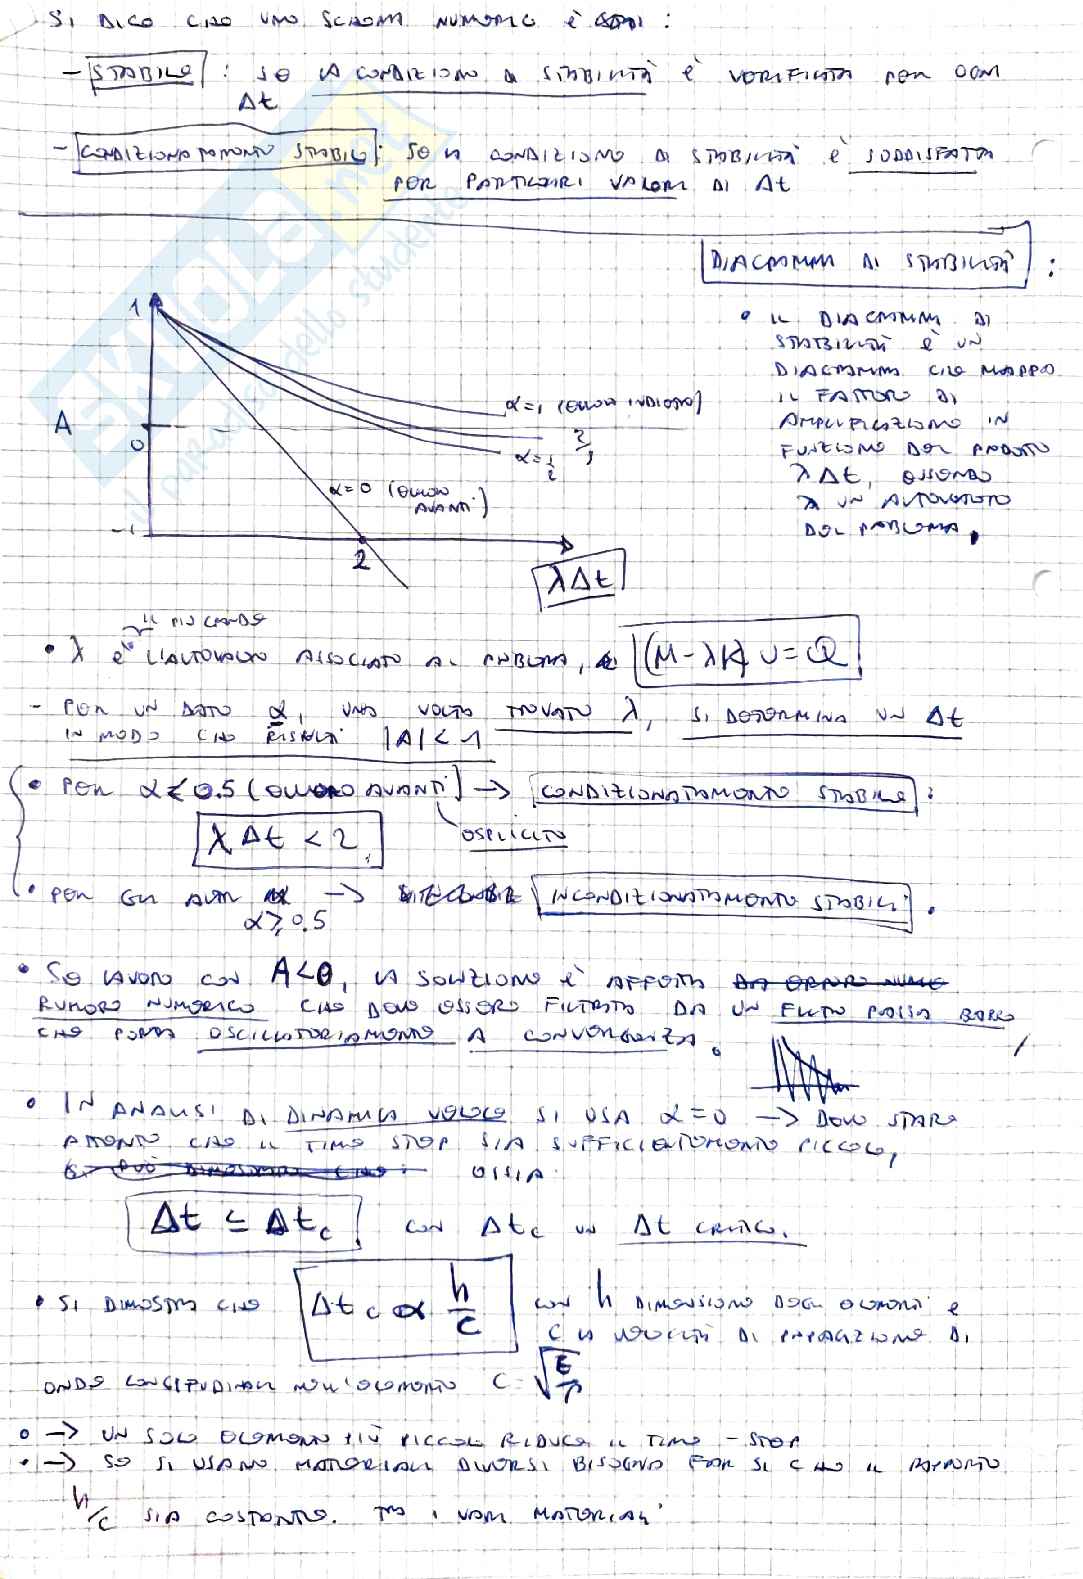 SI DICE CHE UNO SCHEMA NUMERICO È :
- STABILE : SE LA CONDIZIONE DI STABILITÀ È VERIFICATA PER OGNI
Δt
- CONDIZIONATAMENTE STABILE : SE LA CONDIZIONE DI STABILITÀ È SODDISFATTA
PER PARTICOLARI VALORI DI Δt
DIAGRAMMA DI STABILITÀ :
• IL DIAGRAMMA DI
STABILITÀ È UN
DIAGRAMMA CHE MAPPA
IL FATTORE DI
AMPLIFICAZIONE IN
FUNZIONE DEL PRODOTTO
λΔt, ESSENDO
λ UN AUTOVALORE
DEL PROBLEMA.
1
A
0
-1
α=1 (EULERO INDIETRO)
2/3
α=1/2
α=0 (EULERO
AVANTI)
2
λΔt
IL PIÙ GRANDE
• λ È L'AUTOVALORE ASSOCIATO AL PROBLEMA, (M-λK) U=0
- PER UN DATO α, UNA VOLTA TROVATO λ, SI DETERMINA UN Δt
IN MODO CHE RISULTI |A|<1
• PER α<0.5 (EULERO AVANTI) → CONDIZIONATAMENTE STABILE :
ESPLICITO
λΔt < 2
• PER GLI ALTRI → INCONDIZIONATAMENTE STABILI.
α≥0.5
• SE LAVORO CON A<0, LA SOLUZIONE È AFFETTA DA ERRORE NUME
RUMORE NUMERICO CHE DEVE ESSERE FILTRATA DA UN FILTRO PASSA BASSO
CHE PORTA OSCILLATORIAMENTE A CONVERGENZA.
• IN ANALISI DI DINAMICA VELOCE SI USA α=0 → DEVO STARE
ATTENTO CHE IL TIME STEP SIA SUFFICIENTEMENTE PICCOLO,
SI PUÒ DIMOSTRARE CHE: OSSIA:
Δt ≤ Δtc CON Δtc UN Δt CRITICO.
• SI DIMOSTRA CHE Δtc ∝ h/c CON h DIMENSIONE DEGLI ELEMENTI E
C LA VELOCITÀ DI PROPAGAZIONE DI
ONDE LONGITUDINALI NELL'ELEMENTO C=√E/ρ
• → UN SOLO ELEMENTO PIÙ PICCOLO RIDUCE IL TIME-STEP
• → SE SI USANO MATERIALI DIVERSI BISOGNA FAR SÌ CHE IL RAPPORTO
h/c SIA COSTANTE. TRA I VARI MATERIALI